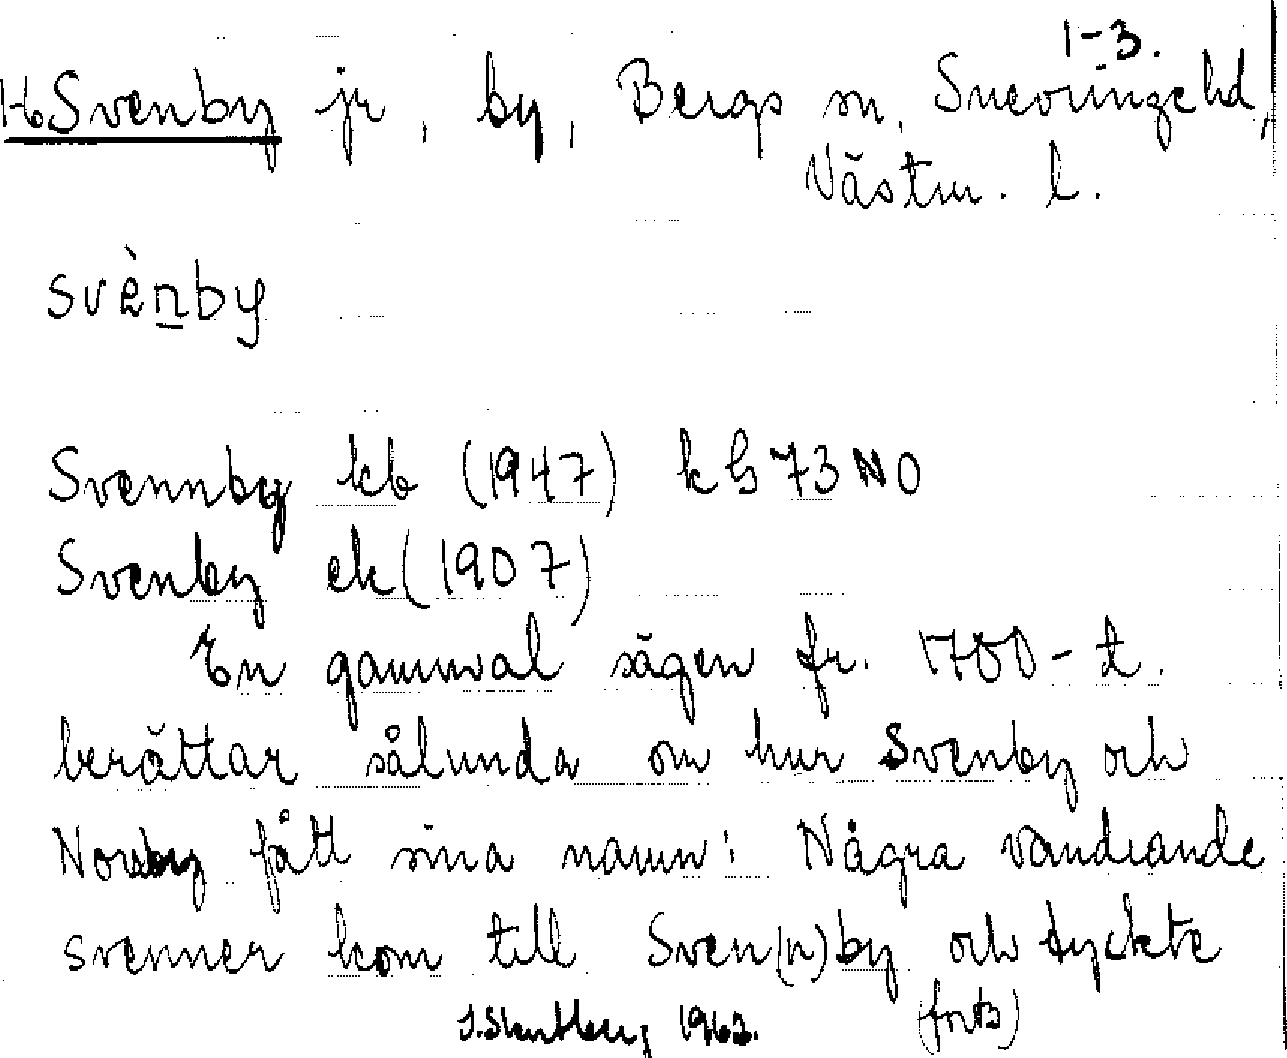 1-3.
Svenby jr, by, Bergs sn, Snevringe hd,
Västm. l.
svènby
Svennby kb (1947) kb 73 NO
Svenby ek (1907)
En gammal sägen fr. 1700-t.
berättar sålunda om hur Svenby och
Norrby fått sina namn: Några vandrande
svenner kom till Sven(n)by och tyckte
1963. (forts)